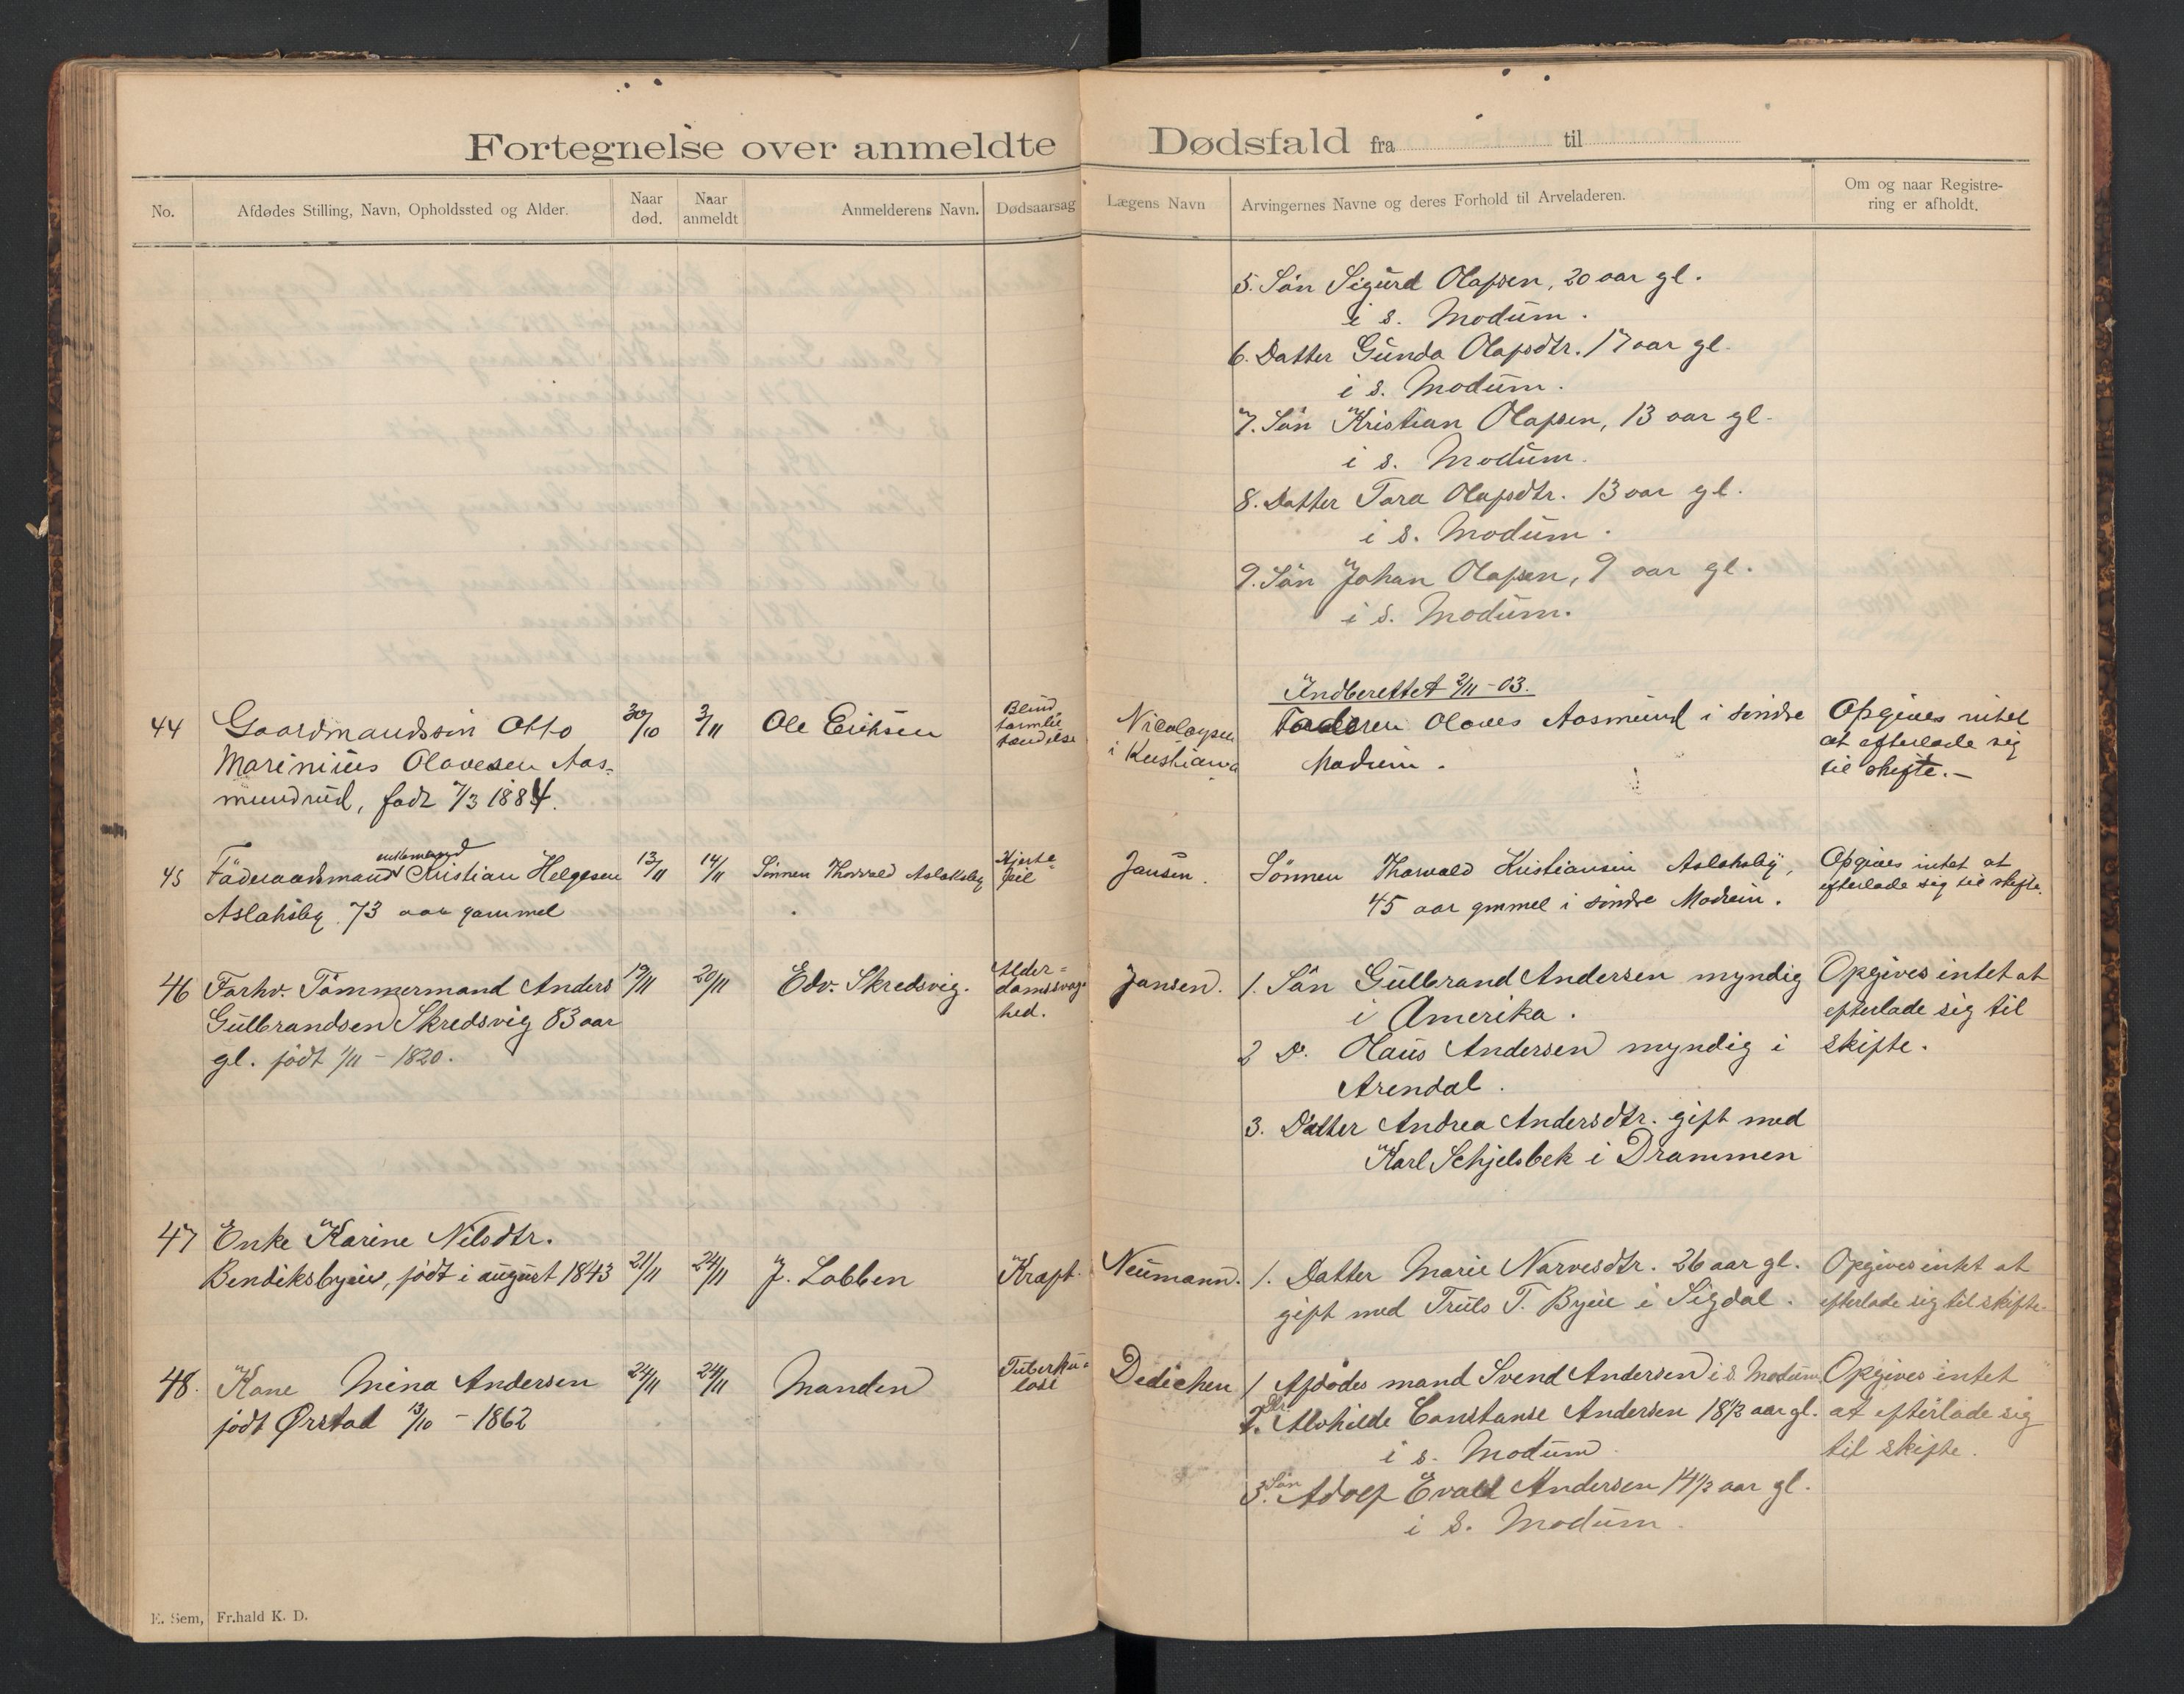 Fortegnelse over anmeldte Dødsfald fra til
No.
Afdødes Stilling, Navn, Opholdssted og Alder.
Naar død.
Naar anmeldt
Anmelderens Navn.
Dødsaarsag
Lægens Navn
Arvingernes Navne og deres Forhold til Arveladeren.
Om og naar Registre-
ring er afholdt.
5. Sön Sigurd Olafsen, 20 aar gl.
i s. Modum.
6. Datter Gunda Olafsdtr. 17 aar gl.
i s. Modum.
7. Sön Kristian Olafsen, 13 aar gl.
i s. Modum.
8. Datter Tora Olafsdtr. 13 aar gl.
i s. Modum.
9. Sön Johan Olafsen, 9 aar gl.
i s. Modum.
Indberettet 2/11-03.
44 Gaardmandssön Otto
Marinius Olavesen Aas-
mundrud, født 7/3 1884.
30/10
3/11
Ole Eriksen
Blind
tarmbe
tændelse
Nicolaysen
i Kristiania
Faderen Olaves Aasmund i søndre
Modum.
Opgives intet
at efterlade sig
til skifte.-
45 Föderaadsmand enkemand Kristian Helgesen
Aslaksby 73 aar gammel
13/11
14/11
Sønnen Thorvald Aslaksby
Hjerte-
feil
Jansen.
Sønnen Thorvald Kristiansen Aslaksby,
45 aar gammel i søndre Modum.
Opgives intet at
efterlade sig til skifte.
46 Forhv. Tömmermand Anders
Gulbrandsen Skredsvig 83 aar
gl. født 1/11 - 1820.
19/11
20/11
Edv. Skredsvig.
Alder-
domssvag-
hed.
Jansen.
1. Sön Gulbrand Andersen myndig
i Amerika.
2 Do. Olaus Andersen myndig i
Arendal.
3. Datter Andrea Andersdtr. gift med
Karl Schjelsbek i Drammen
Opgives intet at
efterlade sig til
skifte.
47 Enke Karine Nilsdtr.
Bendiksbyeie, født i august 1843
21/11
24/11
J. Lobben
Kræft.
Neumann.
1. Datter Marie Narvesdtr. 26 aar gl.
gift med Truls T. Byeie i Sigdal.
Opgives intet at
efterlade sig til skifte.
48. Kone Mina Andersen
født Ørstad 13/10 - 1862
24/11
24/11
Manden
Tuberku-
lose
Dedichen
1 Afdödes mand Svend Andersen i s. Modum
2. Dr. Alvhilde Constanse Andersen 18 1/2 aar gl.
i s. Modum.
3. Sön Adolf Evald Andersen 14 1/2 aar gl.
i s. Modum.
Opgives intet
at efterlade sig
til skifte.
E. Sem, Fr.hald K. D.